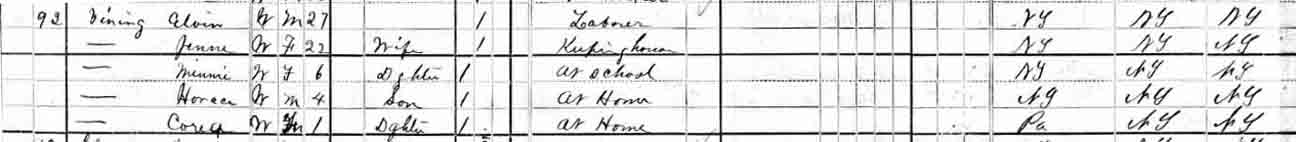 92 Vining Alvin W M 27 1 Laborer NY NY NY
— Jenne W F 22 Wife 1 Keeping house NY NY NY
— Minnie W F 6 Dghter 1 at School NY NY NY
— Horace W M 4 Son 1 at Home NY NY NY
— W 1 Dghter 1 at Home Pa NY NY